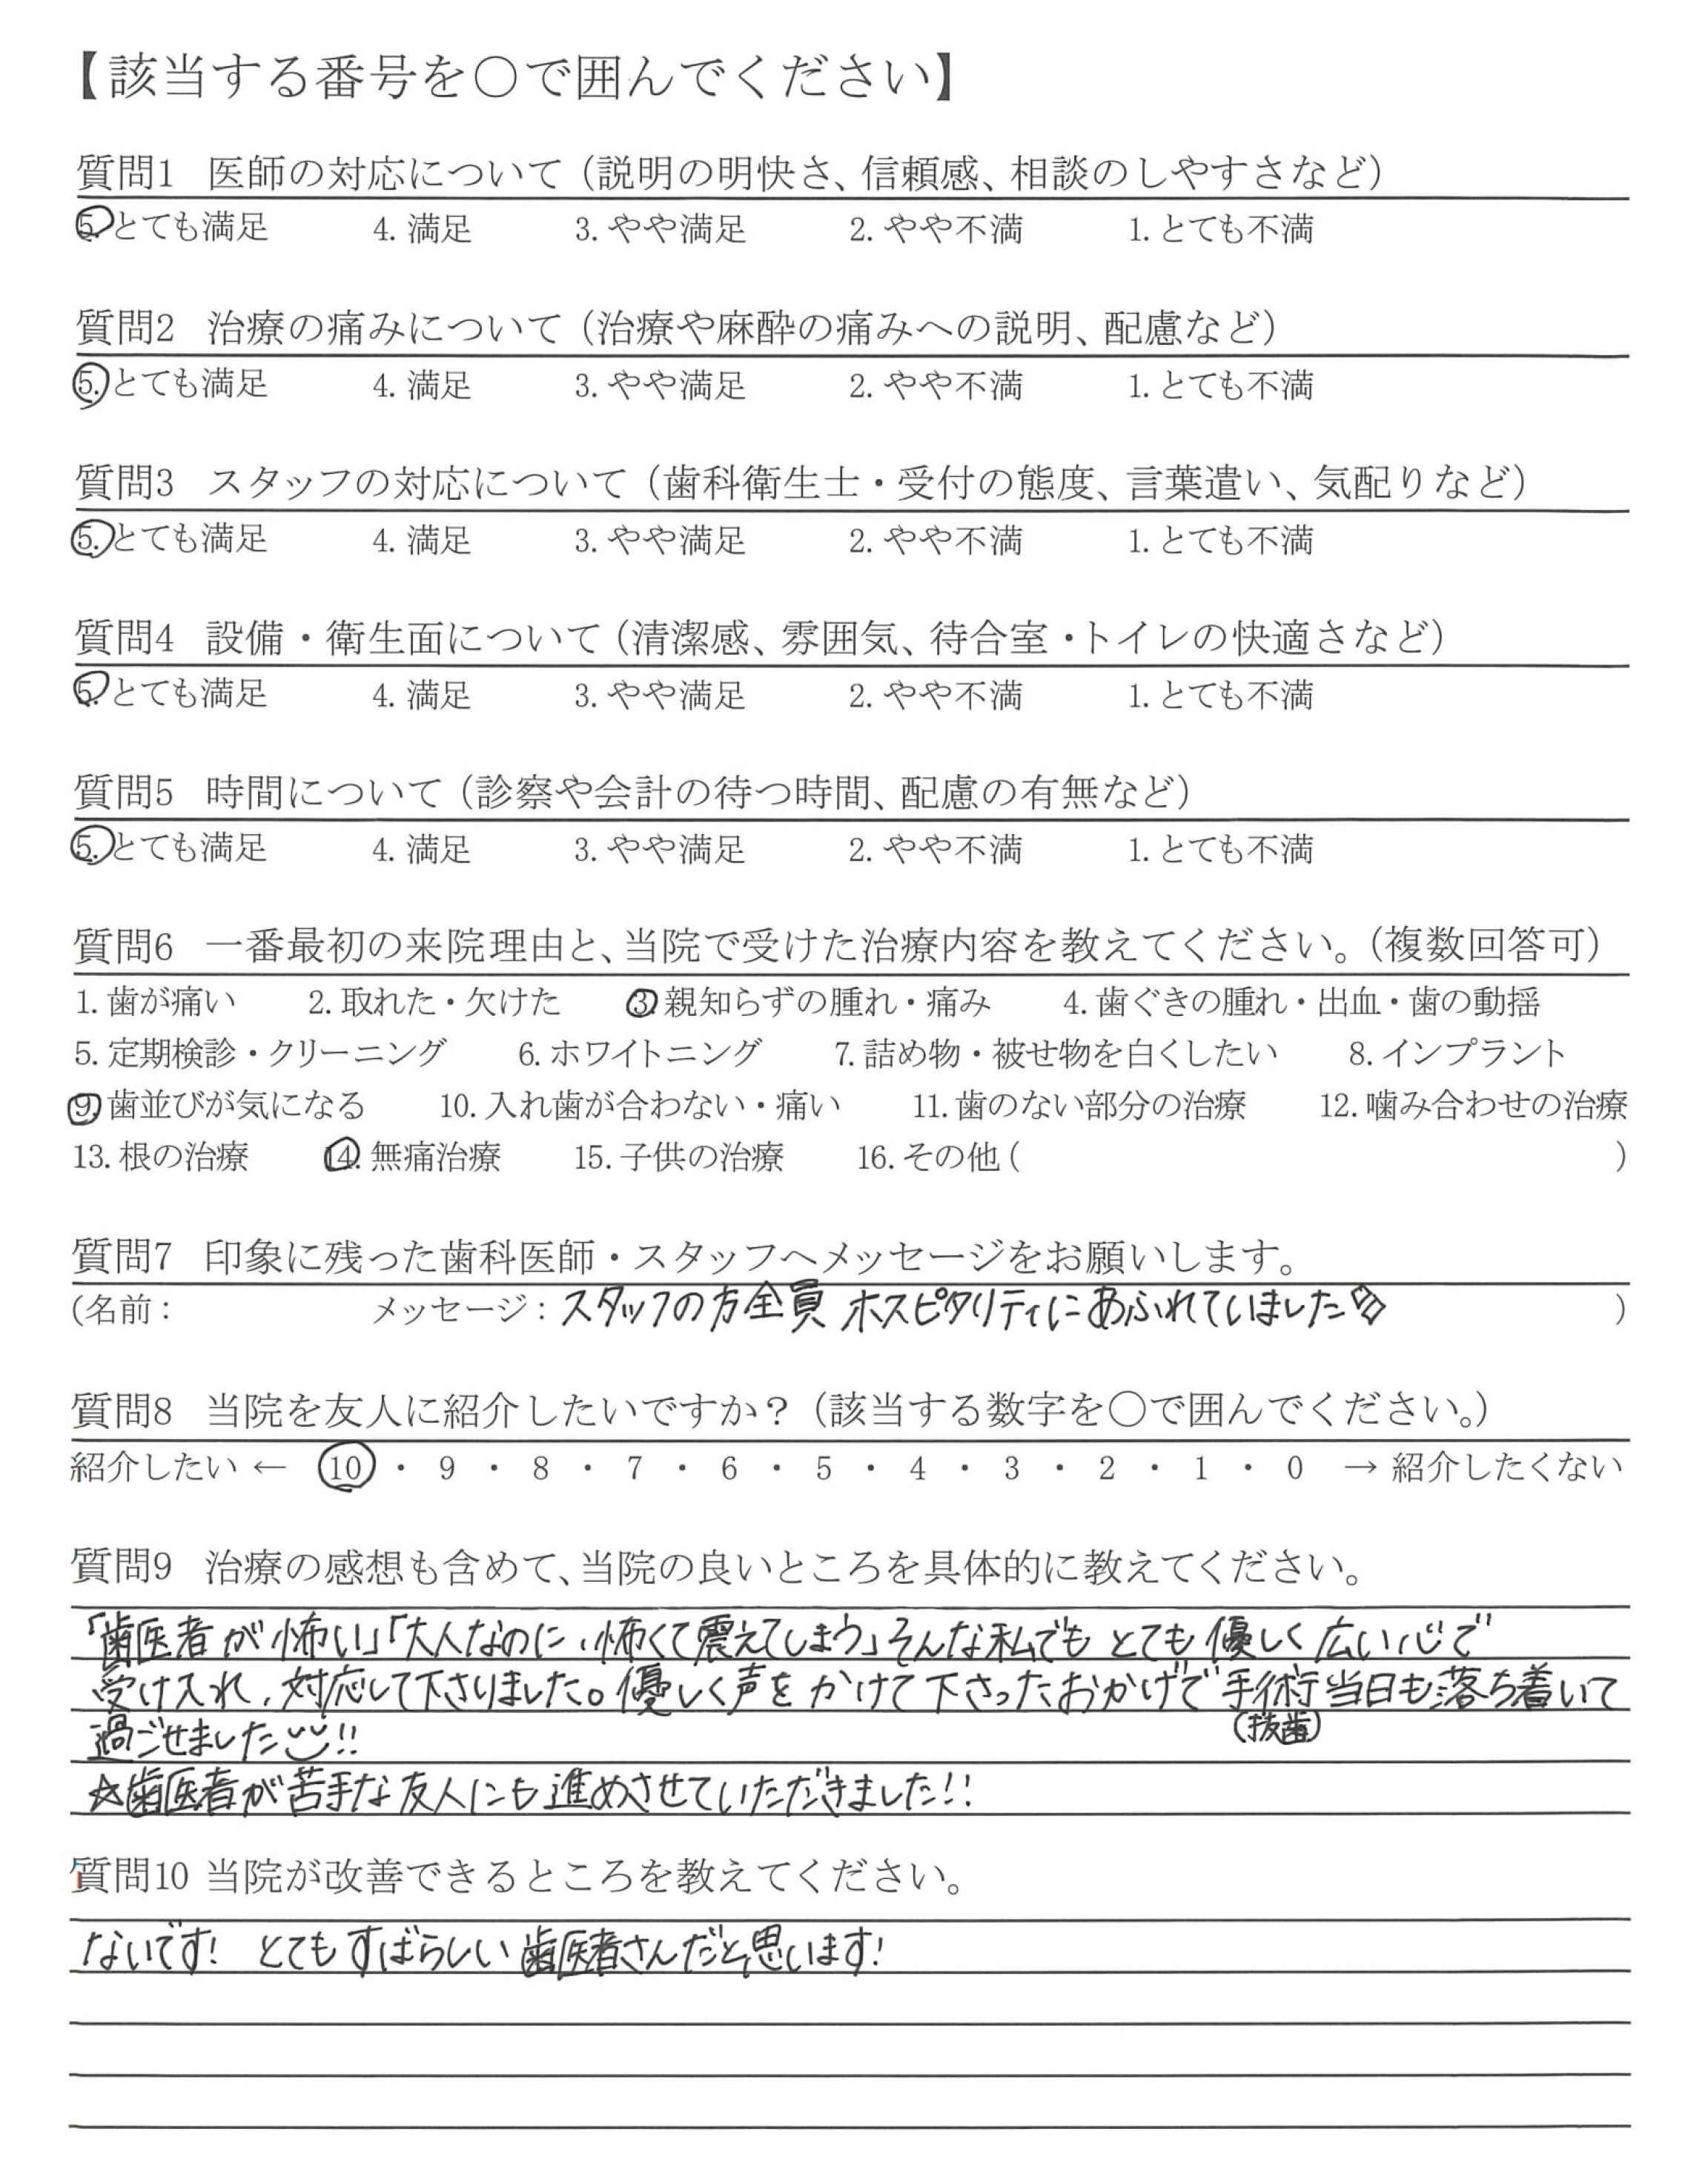 【該当する番号を○で囲んでください】
質問1 医師の対応について（説明の明快さ、信頼感、相談のしやすさなど）
5. とても満足 4. 満足 3. やや満足 2. やや不満 1. とても不満
質問2 治療の痛みについて（治療や麻酔の痛みへの説明、配慮など）
5. とても満足 4. 満足 3. やや満足 2. やや不満 1. とても不満
質問3 スタッフの対応について（歯科衛生士・受付の態度、言葉遣い、気配りなど）
5. とても満足 4. 満足 3. やや満足 2. やや不満 1. とても不満
質問4 設備・衛生面について（清潔感、雰囲気、待合室・トイレの快適さなど）
5. とても満足 4. 満足 3. やや満足 2. やや不満 1. とても不満
質問5 時間について（診察や会計の待つ時間、配慮の有無など）
5. とても満足 4. 満足 3. やや満足 2. やや不満 1. とても不満
質問6 一番最初の来院理由と、当院で受けた治療内容を教えてください。（複数回答可）
1. 歯が痛い 2. 取れた・欠けた 3. 親知らずの腫れ・痛み 4. 歯ぐきの腫れ・出血・歯の動揺
5. 定期検診・クリーニング 6. ホワイトニング 7. 詰め物・被せ物を白くしたい 8. インプラント
9. 歯並びが気になる 10. 入れ歯が合わない・痛い 11. 歯のない部分の治療 12. 噛み合わせの治療
13. 根の治療 14. 無痛治療 15. 子供の治療 16. その他（ ）
質問7 印象に残った歯科医師・スタッフへメッセージをお願いします。
（名前： メッセージ：スタッフの方全員 ホスピタリティにあふれていました ）
質問8 当院を友人に紹介したいですか？（該当する数字を○で囲んでください。）
紹介したい ← 10 ・ 9 ・ 8 ・ 7 ・ 6 ・ 5 ・ 4 ・ 3 ・ 2 ・ 1 ・ 0 → 紹介したくない
質問9 治療の感想も含めて、当院の良いところを具体的に教えてください。
「歯医者が怖い」「大人なのに、怖くて震えてしまう」そんな私でも とても優しく広い心で
受け入れ、対応して下さりました。優しく声をかけて下さったおかげで手術当日も落ち着いて
（抜歯）
過ごせました!!
☆歯医者が苦手な友人にも進めさせていただきました!!
質問10 当院が改善できるところを教えてください。
ないです! とてもすばらしい歯医者さんだと思います!